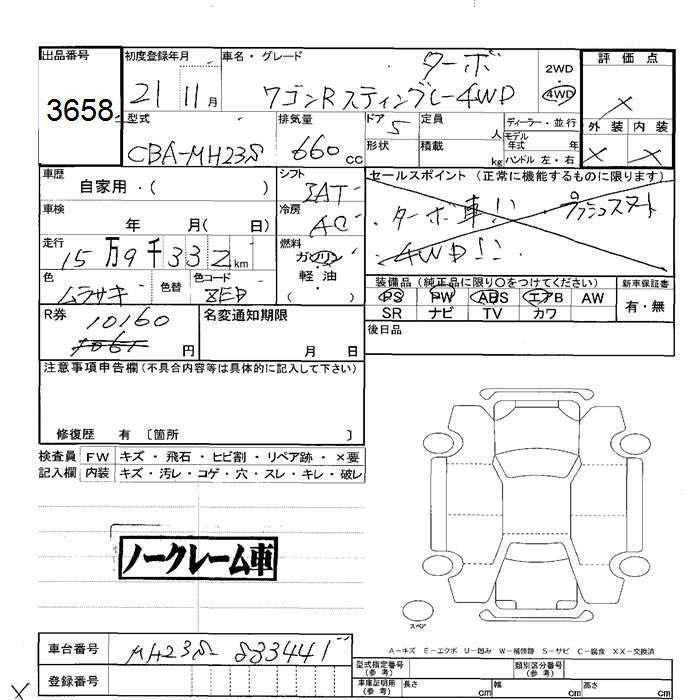 出品番号
3658
初度登録年月
21 11月
車名・グレード
ターボ
ワゴンRスティングレー4WD
2WD
・
4WD
評価点
×
外装 内装
× ×
型式
CBA-MH23S
排気量
660 CC
ドア 5
形状
定員 人
積載 kg
ディーラー・並行
モデル
年式 年
ハンドル 左・右
車歴
自家用・( )
シフト
IAT
セールスポイント(正常に機能するものに限ります)
・ターボ車!! ・プッシュスタート
・4WD!!
車検
年 月( 日)
冷房
AC
走行
15万9千332km
燃料
ガソリン
軽油
( )
色
ムラサキ
色替
色コード
装備品(純正品に限り○をつけてください)
PS PW ABS エアB AW
SR ナビ TV カワ
新車保証書
有・無
R券
10160
円
名変通知期限
月 日
後日品
注意事項申告欄(不具合内容等は具体的に記入して下さい)
修復歴 有〔箇所 〕
検査員 FW キズ・飛石・ヒビ割・リペア跡・×要
記入欄 内装 キズ・汚レ・コゲ・穴・スレ・キレ・破レ
ノークレーム車
スペア
A-キズ E-エクボ U-凹み W-補修跡 S-サビ C-腐食 XX-交換済
車台番号
MH23S-883441
登録番号
型式指定番号
(参考)
類別区分番号
(参考)
車庫証明用
(参考)
長さ cm 幅 cm 高さ cm
×